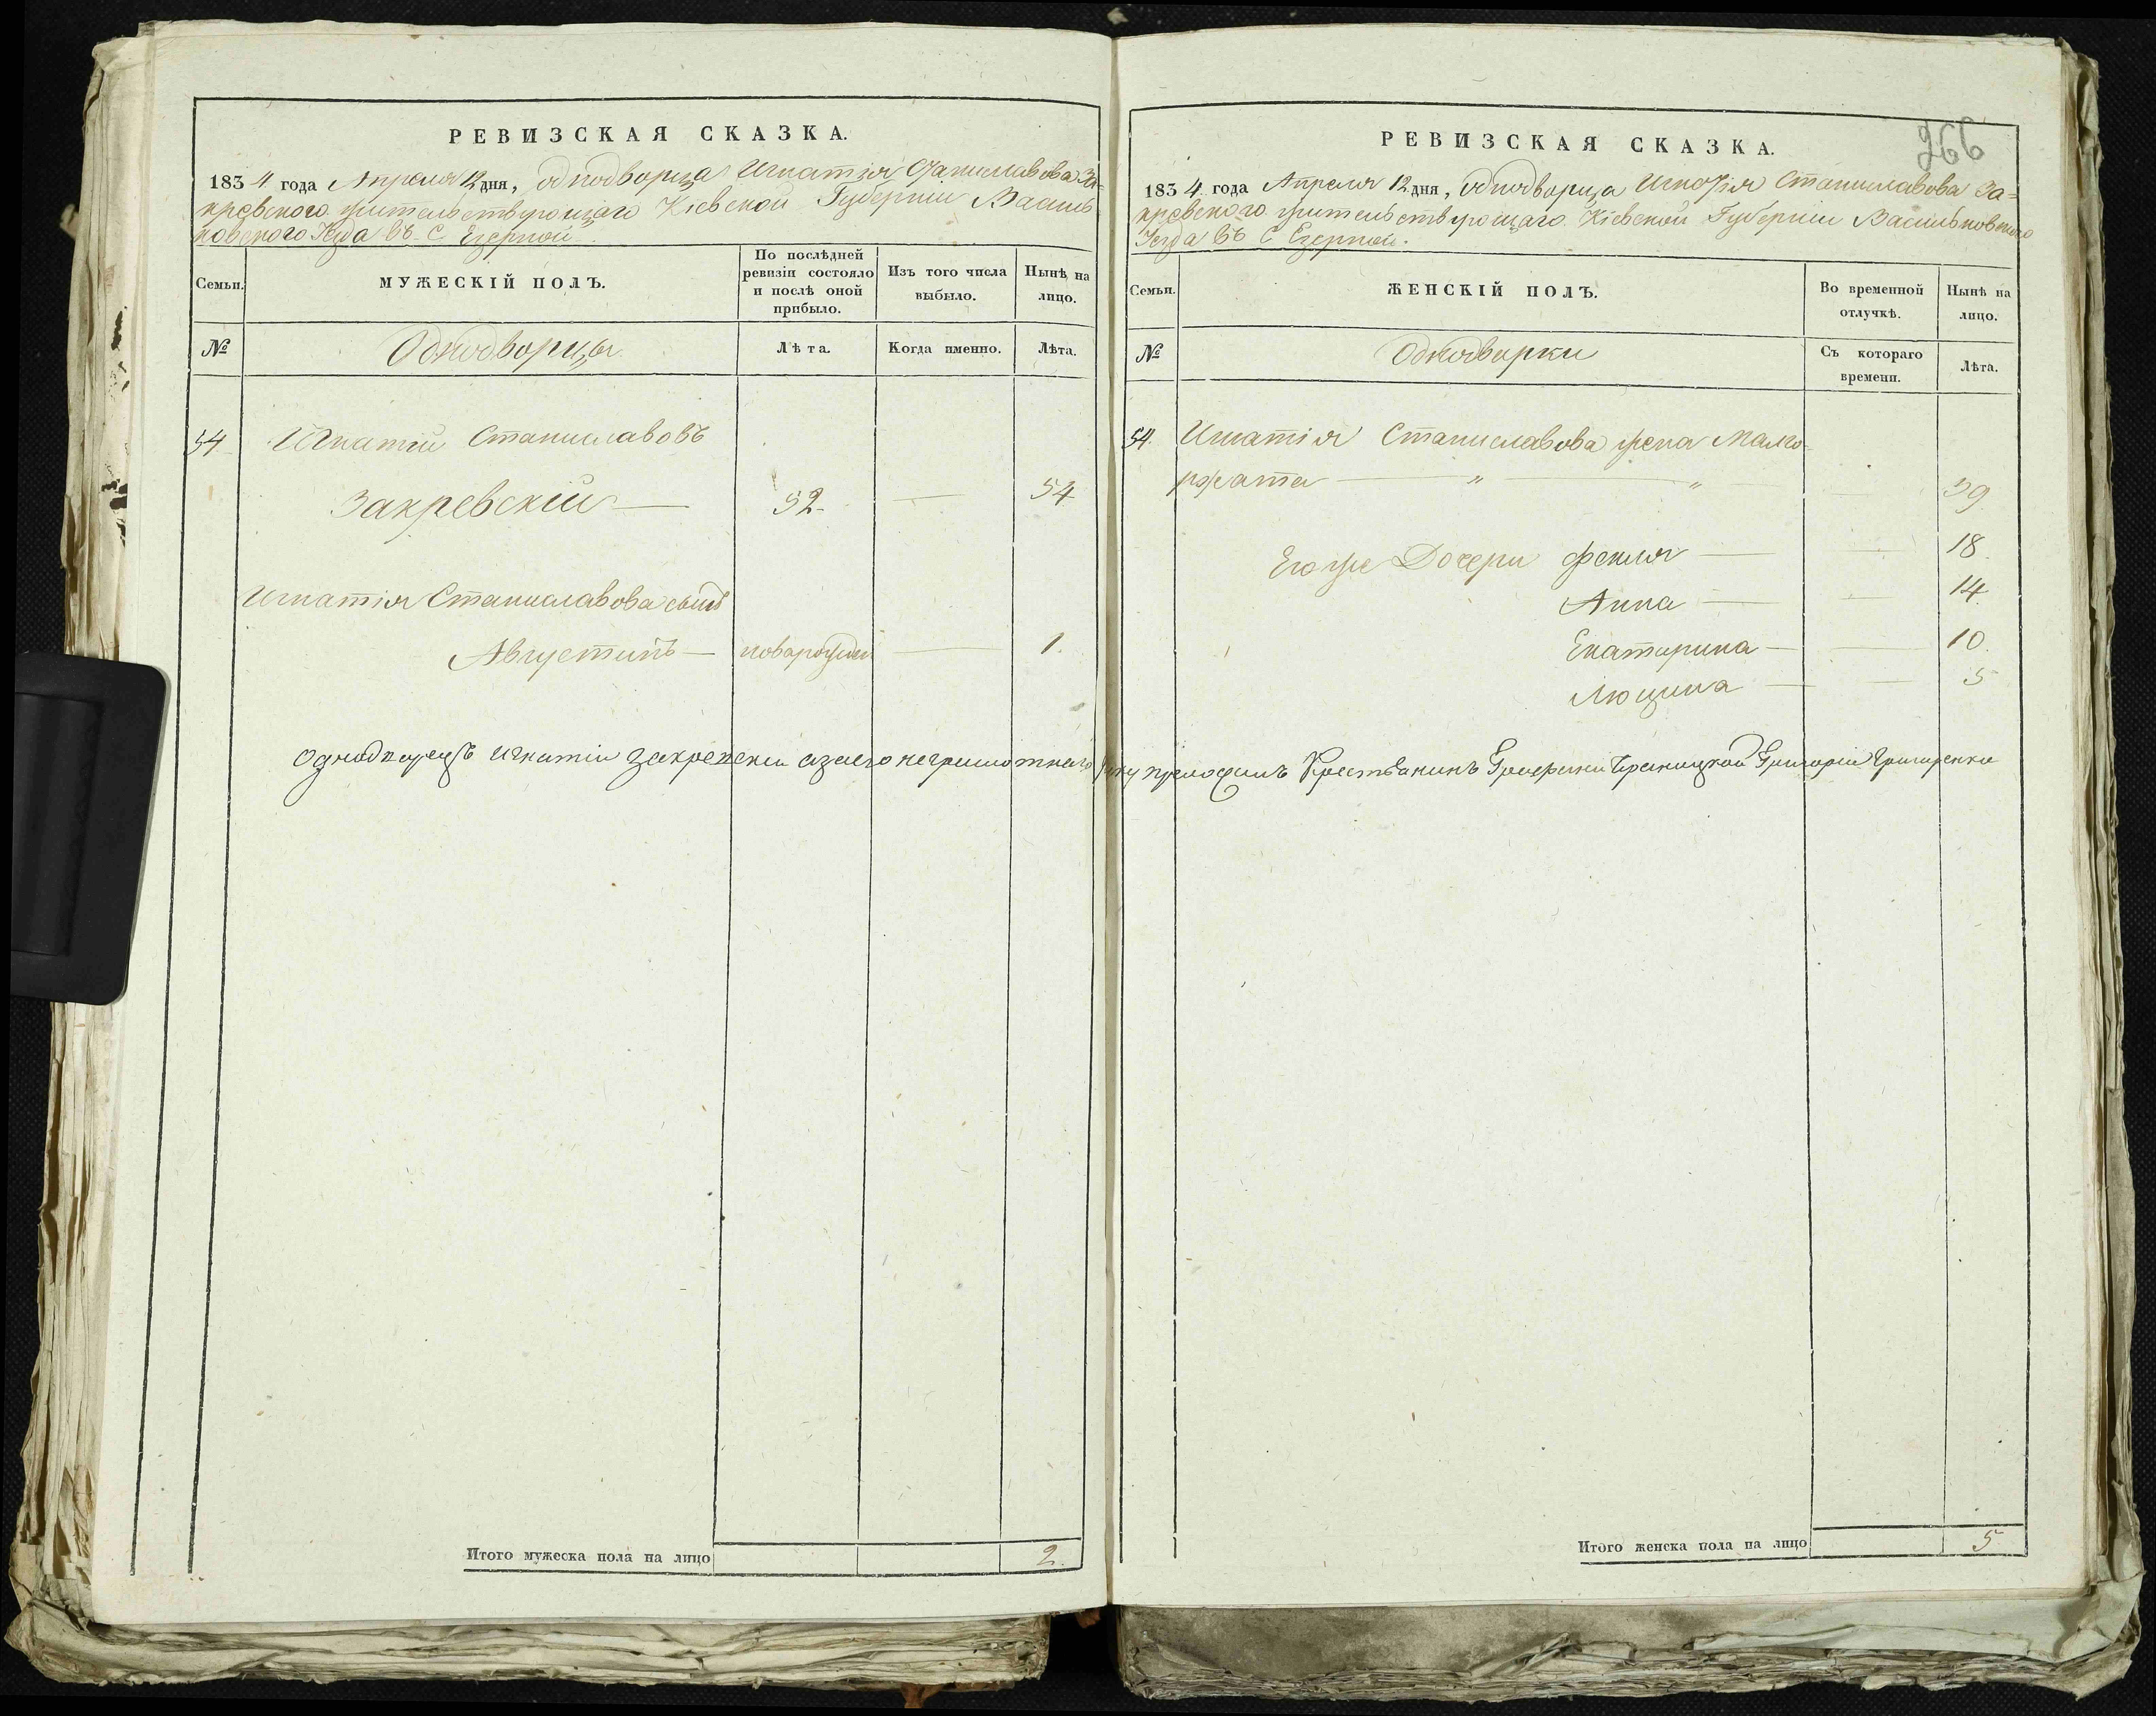 РЕВИЗСКАЯ СКАЗКА.
1834 года Апреля 12 дня, однодворца Игнатія Станиславова За-
кревского жительствующаго Кіевской Губерніи Василь-
ковского Уезда въ С Езерной.
Семьи.
МУЖЕСКІЙ ПОЛЪ.
По послѣдней ревизіи состояло и послѣ оной прибыло.
Изъ того числа выбыло.
Нынѣ на лицо.
№
Однодворцы
Лѣта.
Когда именно.
Лѣта.
54 Игнатій Станиславовъ
Закревскій — 52 — 54
Игнатія Станиславова сынъ
Августинъ — новорожден — 1.
Однодворецъ Игнатій Закревскій а за его неграмотнаго руку приложилъ Крестьянинъ Графини Браницкой Григорій Григоренко
Итого мужеска пола на лицо 2.
266
РЕВИЗСКАЯ СКАЗКА.
1834 года Апреля 12 дня, Однодворца Игнатія Станиславова За=
кревского жительствующаго Кіевской Губерніи Васильковского
Уезда въ С Езерной.
Семьи.
ЖЕНСКІЙ ПОЛЪ.
Во временной отлучкѣ.
Нынѣ на лицо.
№
Однодворки
Съ котораго времени.
Лѣта.
54. Игнатія Станиславова жена Малго-
ржата — " — " — 39
Его же Дочери Фекля — — 18
Анна — — 14.
Екатерина — — 10.
Люцина — — 5
Итого женска пола на лицо 5